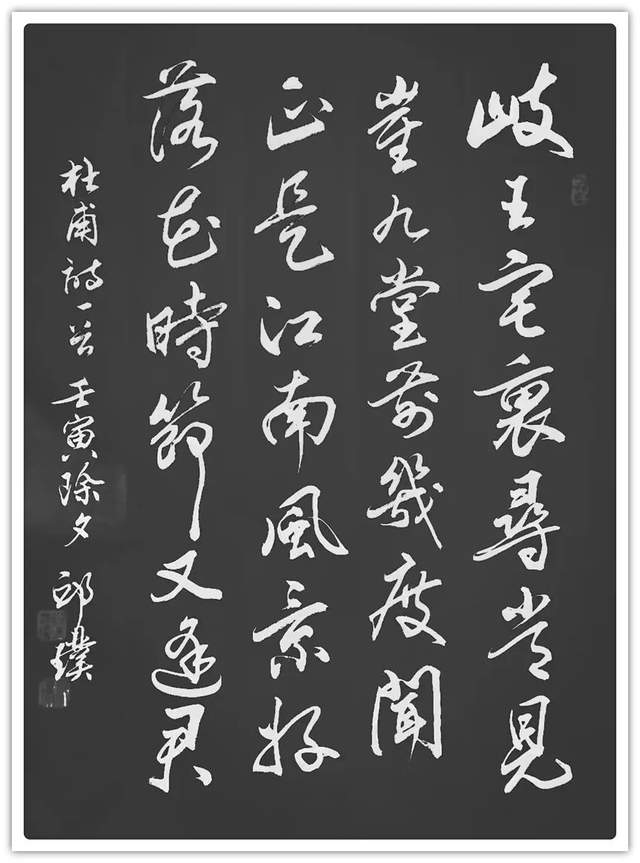 岐王宅裏尋常見
崔九堂前幾度聞
正是江南風景好
落花時節又逢君
杜甫詩一首 壬寅除夕 邱璞